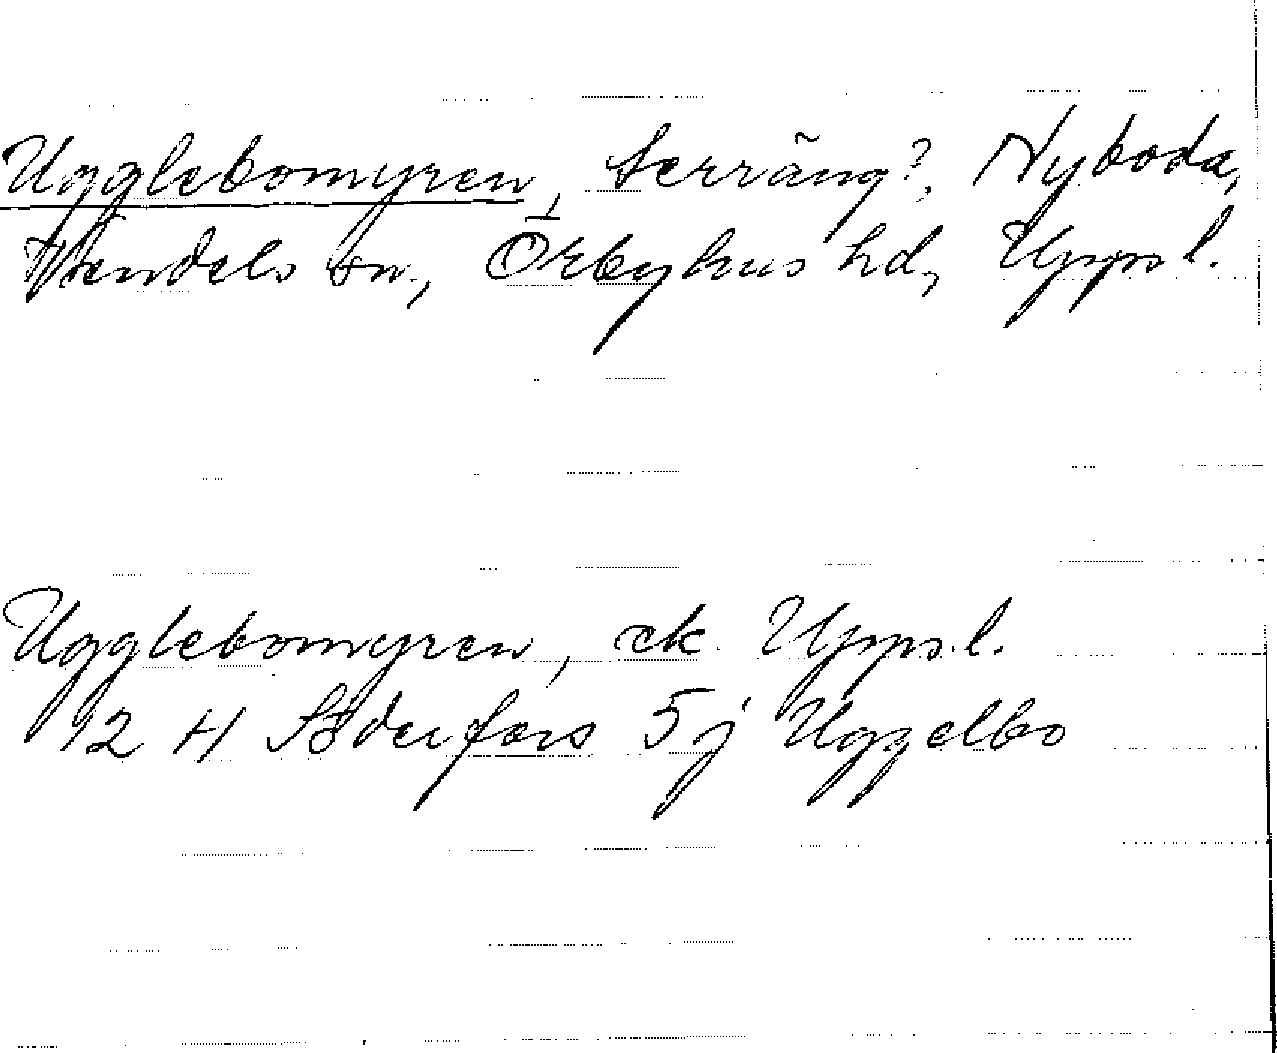 Ugglebomyren, terräng?, Nyboda,
Vendels sn, Örbyhus hd, Uppl.
Ugglebomyren, ek. Uppl.
12 H Söderfors 5j Uggelbo